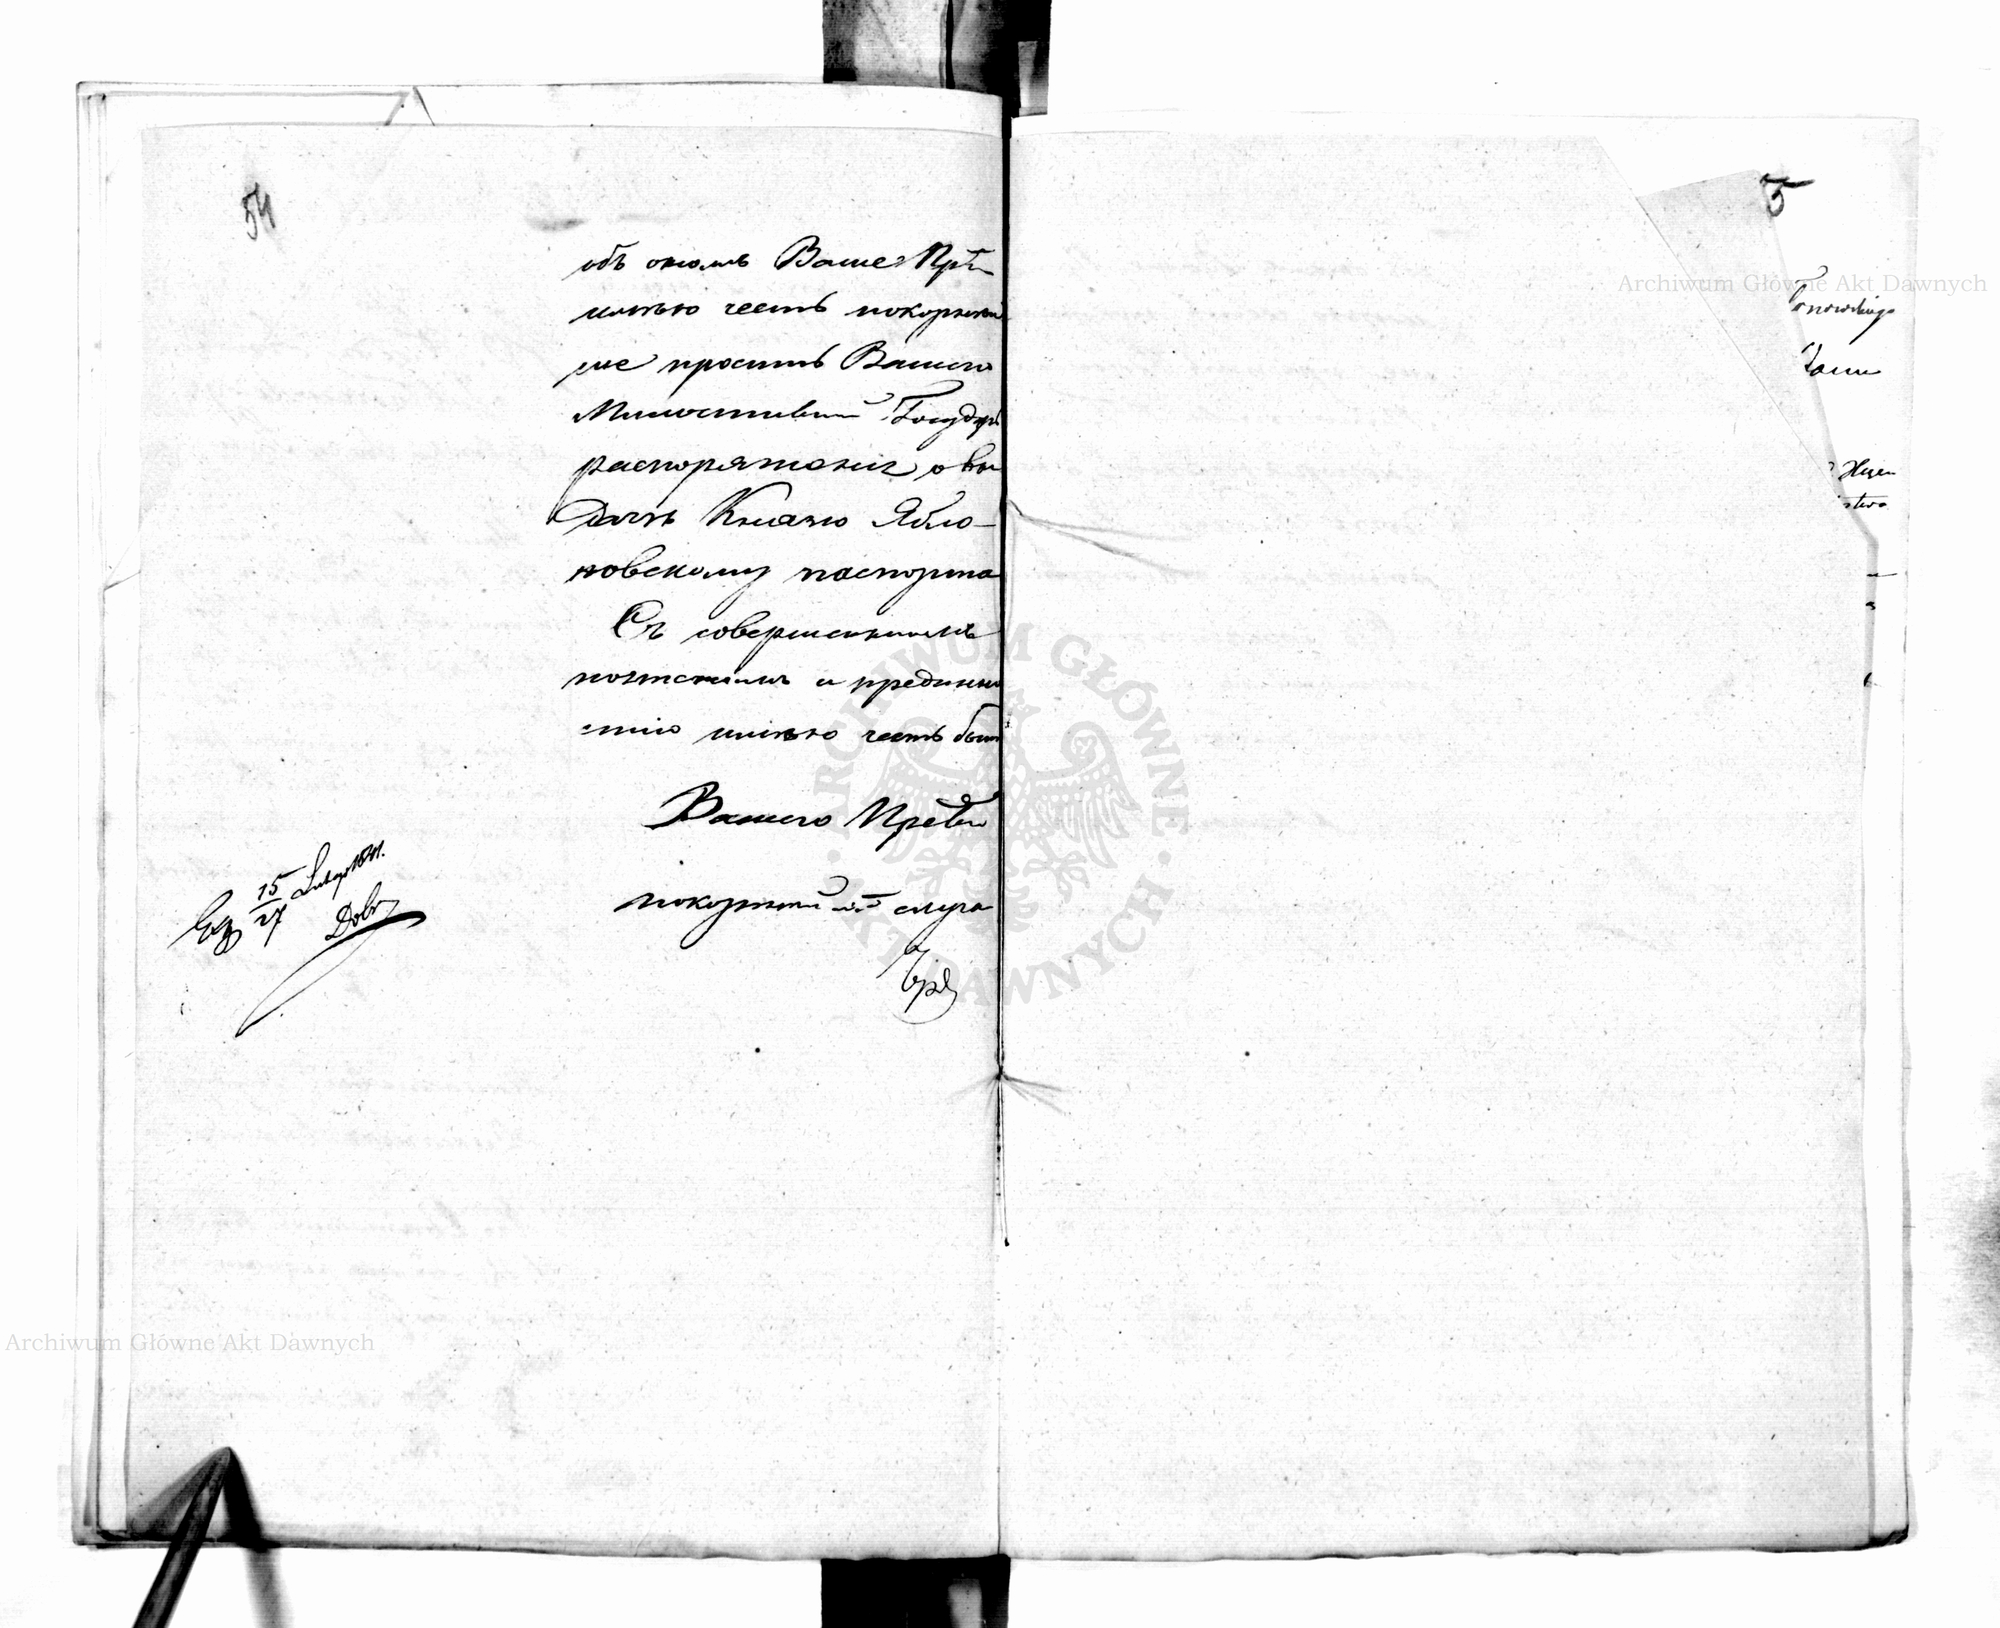 54
объ ономъ Ваше Пр-
имѣю честь покорнѣй
ше просить Вашего
Милостивый Государь
распоряженія о вы
дачѣ Князю Ябло-
новскому паспорта
Съ совершеннымъ
почтеніемъ и преданно
стію имѣю честь быть
Вашего Превъ
покорнѣйшій слуга
15/27 Lutego 1841.
Dobr
5
Archiwum Główne Akt Dawnych
ARCHIWUM GŁÓWNE AKT DAWNYCH
Archiwum Główne Akt Dawnych